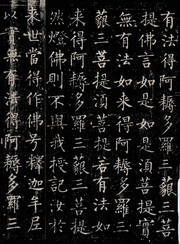 有法得阿耨多羅三藐三菩
提佛言如是如是須菩提實
無有法如來得阿耨多羅三
藐三菩提須菩提若有法如
來得阿耨多羅三藐三菩提
然燈佛則不與我授記汝於
來世當得作佛号釋迦牟尼
以實無有法得阿耨多羅三